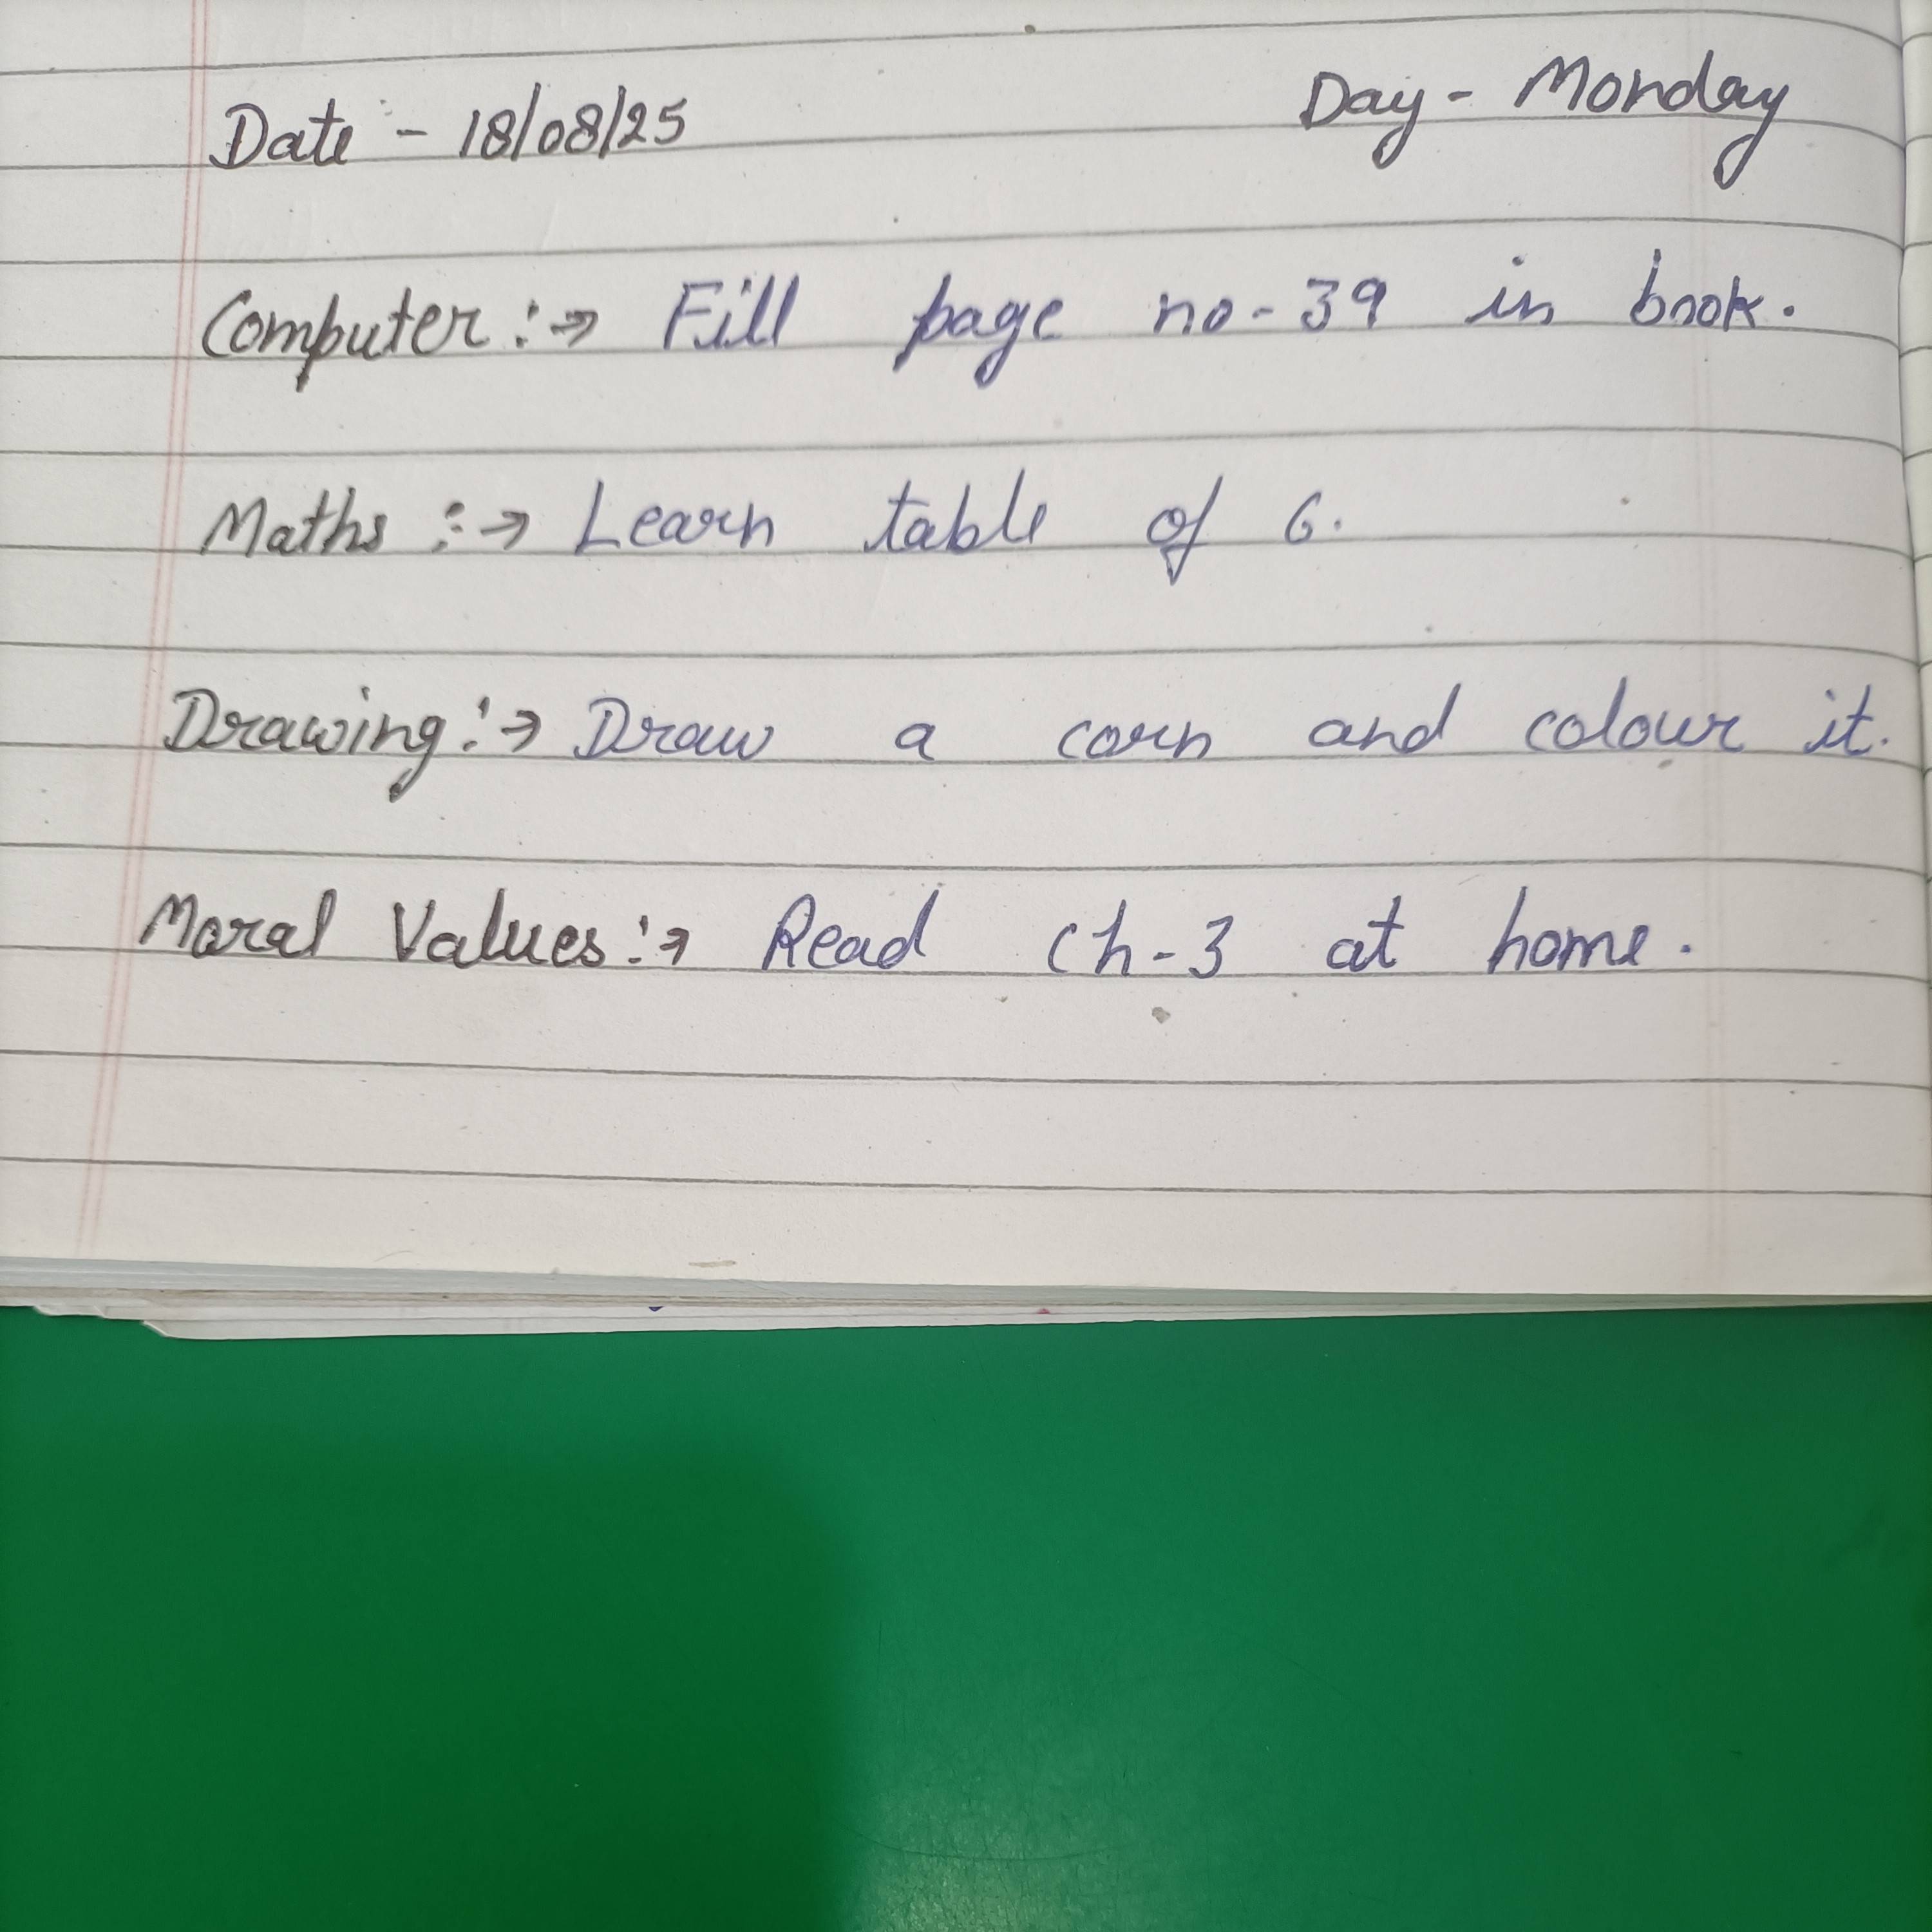 Date - 18/08/25 Day - Monday
Computer :→ Fill page no - 39 in book.
Maths :→ Learn table of 6.
Drawing :→ Draw a corn and colour it.
Moral Values :→ Read Ch-3 at home.